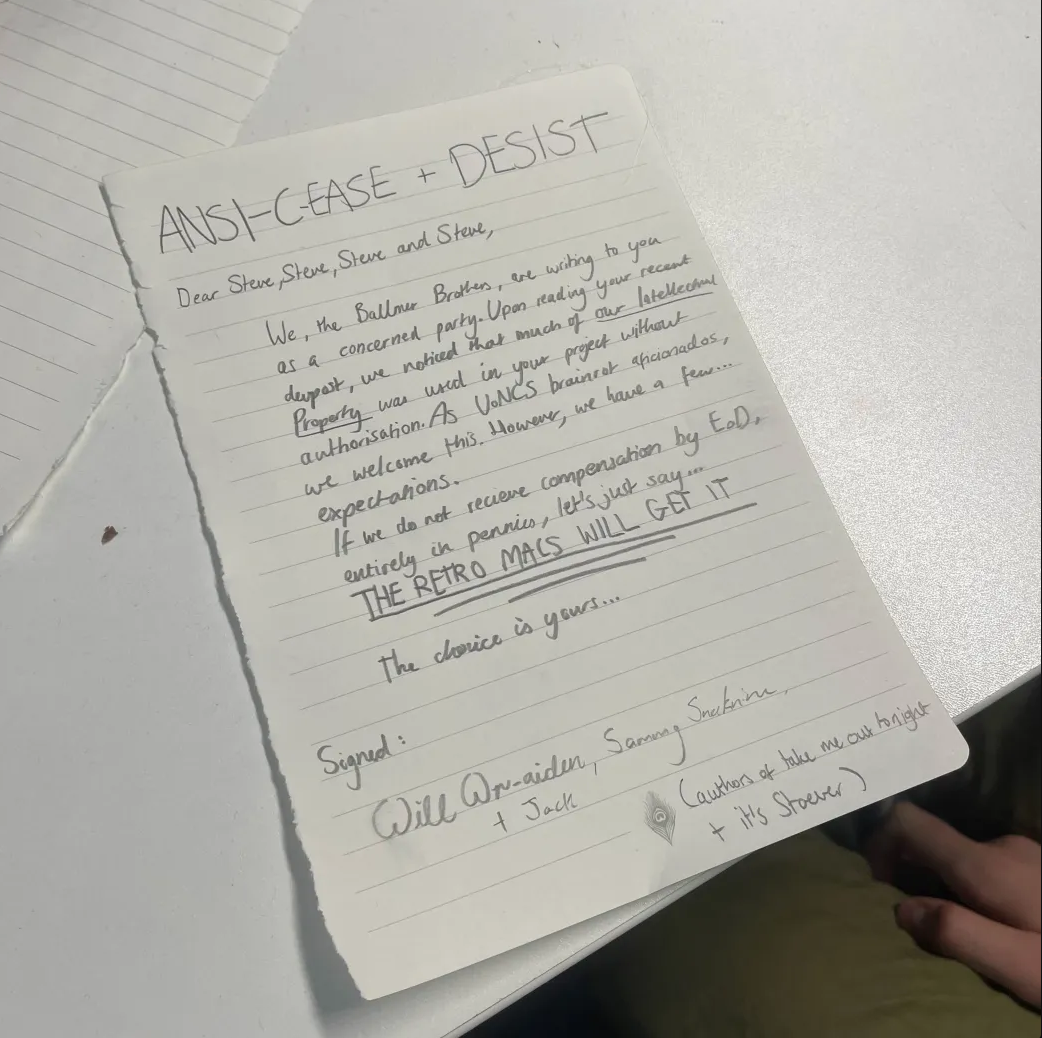 ANSI-C-EASE + DESIST
Dear Steve, Steve, Steve and Steve,
We, the Ballmer Brothers, are writing to you
as a concerned party. Upon reading your recent
devpost, we noticed that much of our Intellectual
Property was used in your project without
authorisation. As UoNCS brainrot aficionados,
we welcome this. However, we have a few...
expectations.
If we do not recieve compensation by EoD,
entirely in pennies, let's just say...
THE RETRO MACS WILL GET IT
The choice is yours...
Signed:
Will Wn-aiden, Sammy
+ Jack
(authors of take me out tonight
+ it's Stoever)